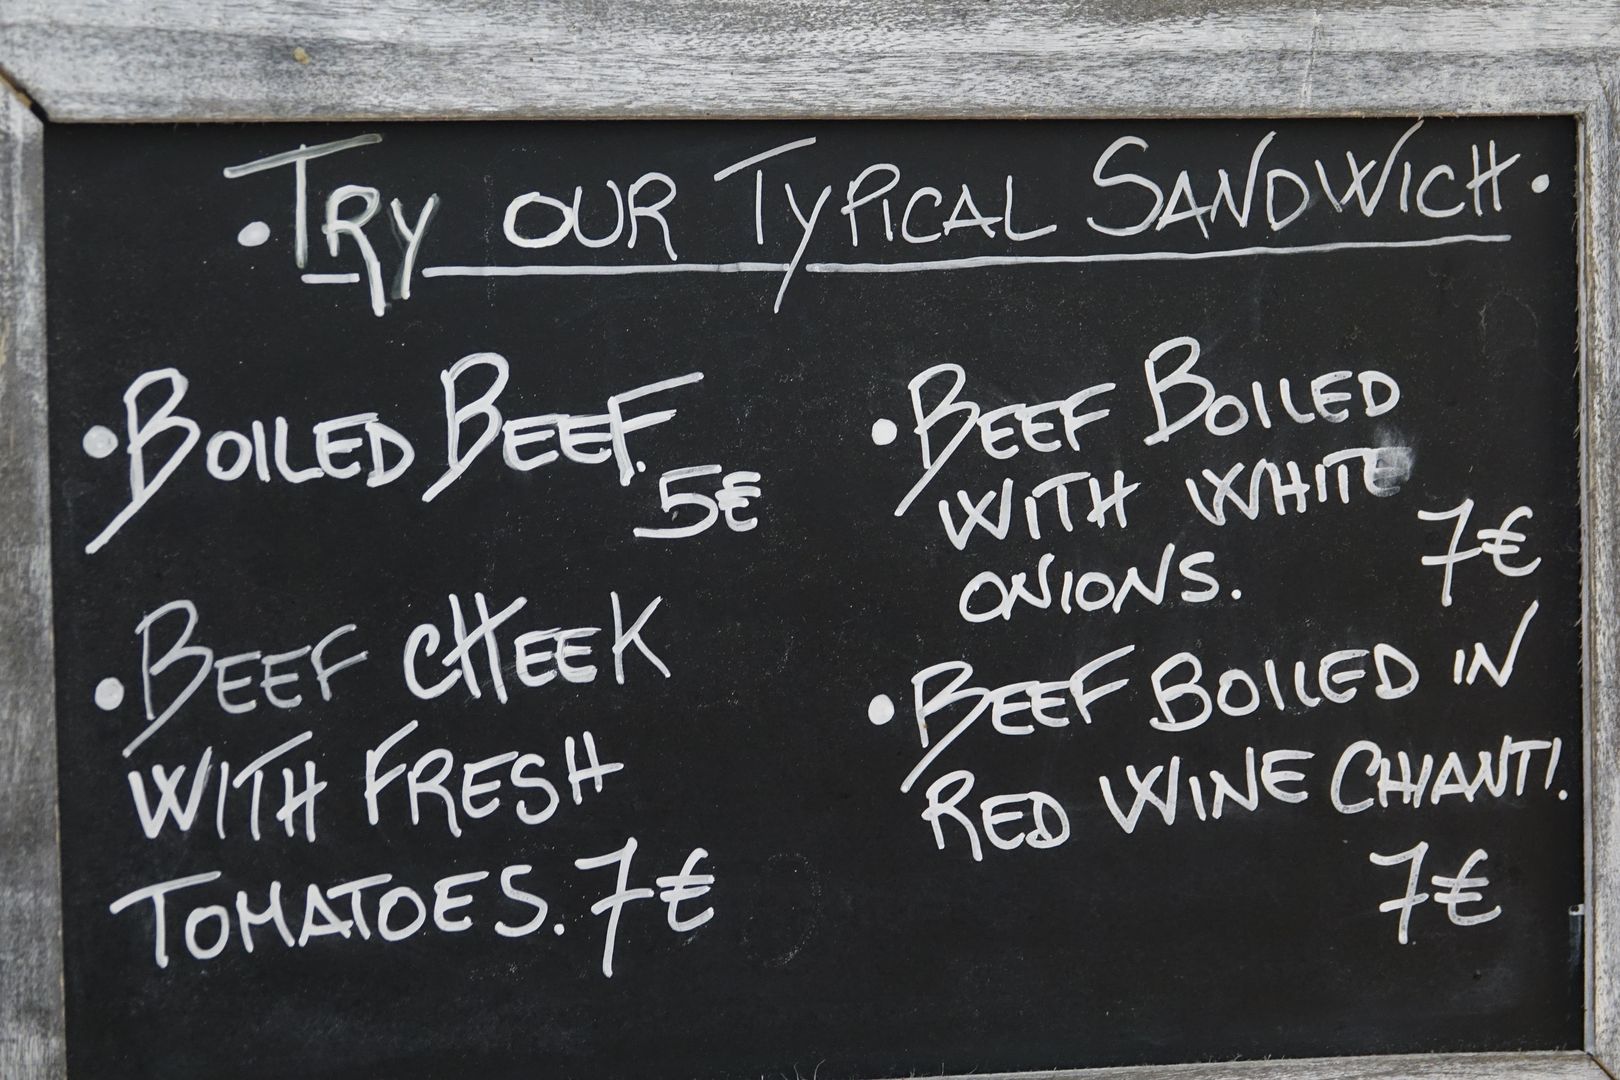 • TRY OUR TYPICAL SANDWICH •
• BOILED BEEF.
5€
• BEEF CHEEK
WITH FRESH
TOMATOES. 7€
• BEEF BOILED
WITH WHITE
ONIONS. 7€
• BEEF BOILED IN
RED WINE CHIANTI.
7€